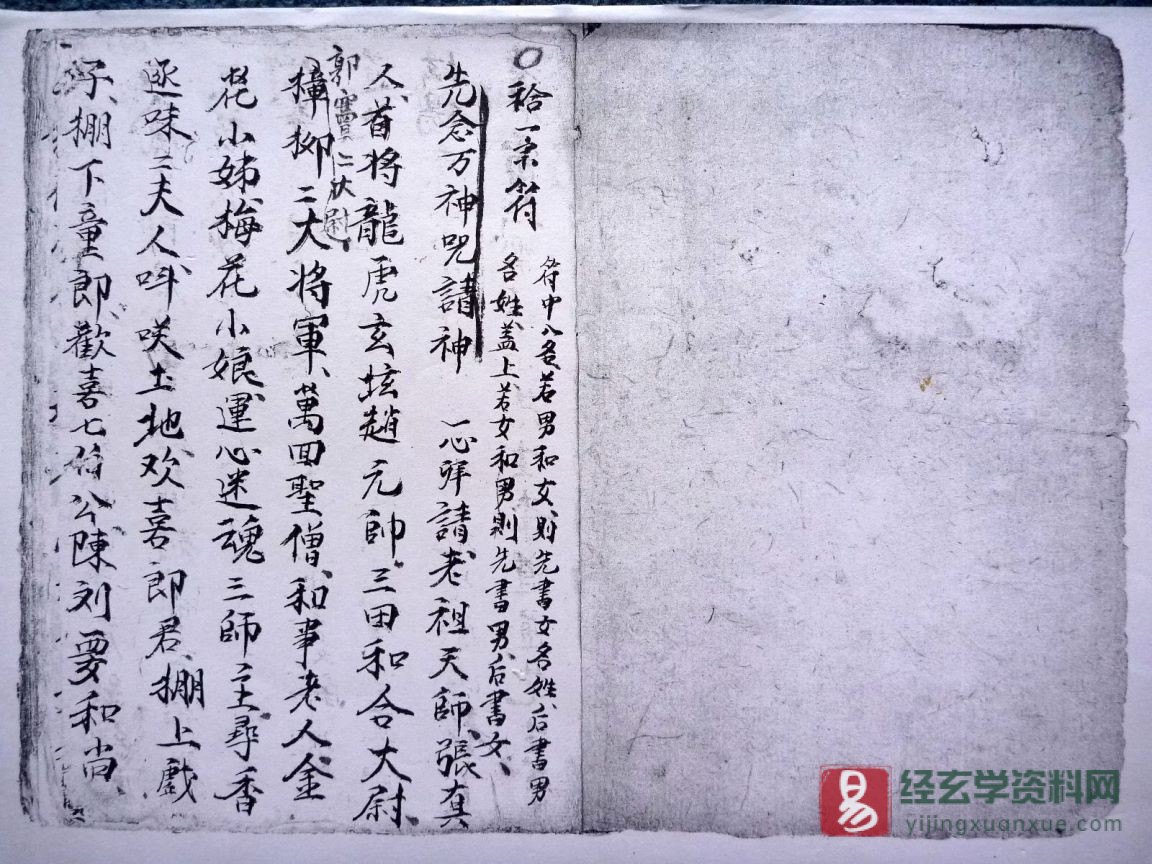 ○
符
符中八名若男和女、则先書女名姓、后書男
名姓盖上若女和男、则先書男、后書女、
先念万神咒請神 一心拜請老祖天師、張真
人、首将龍虎玄坛趙元帥、三田和合大尉、
郭
二伏尉
樟柳二大将軍、萬回聖僧、和事老人、金
花小姊、梅花小娘、運心迷魂三師主、尋香
逐味二夫人、咲土地、欢喜郎君、棚上戲
子、棚下童郎、歡喜七伯公、陳刘要和尚、
易
经玄学资料网
yijingxuanxue.com